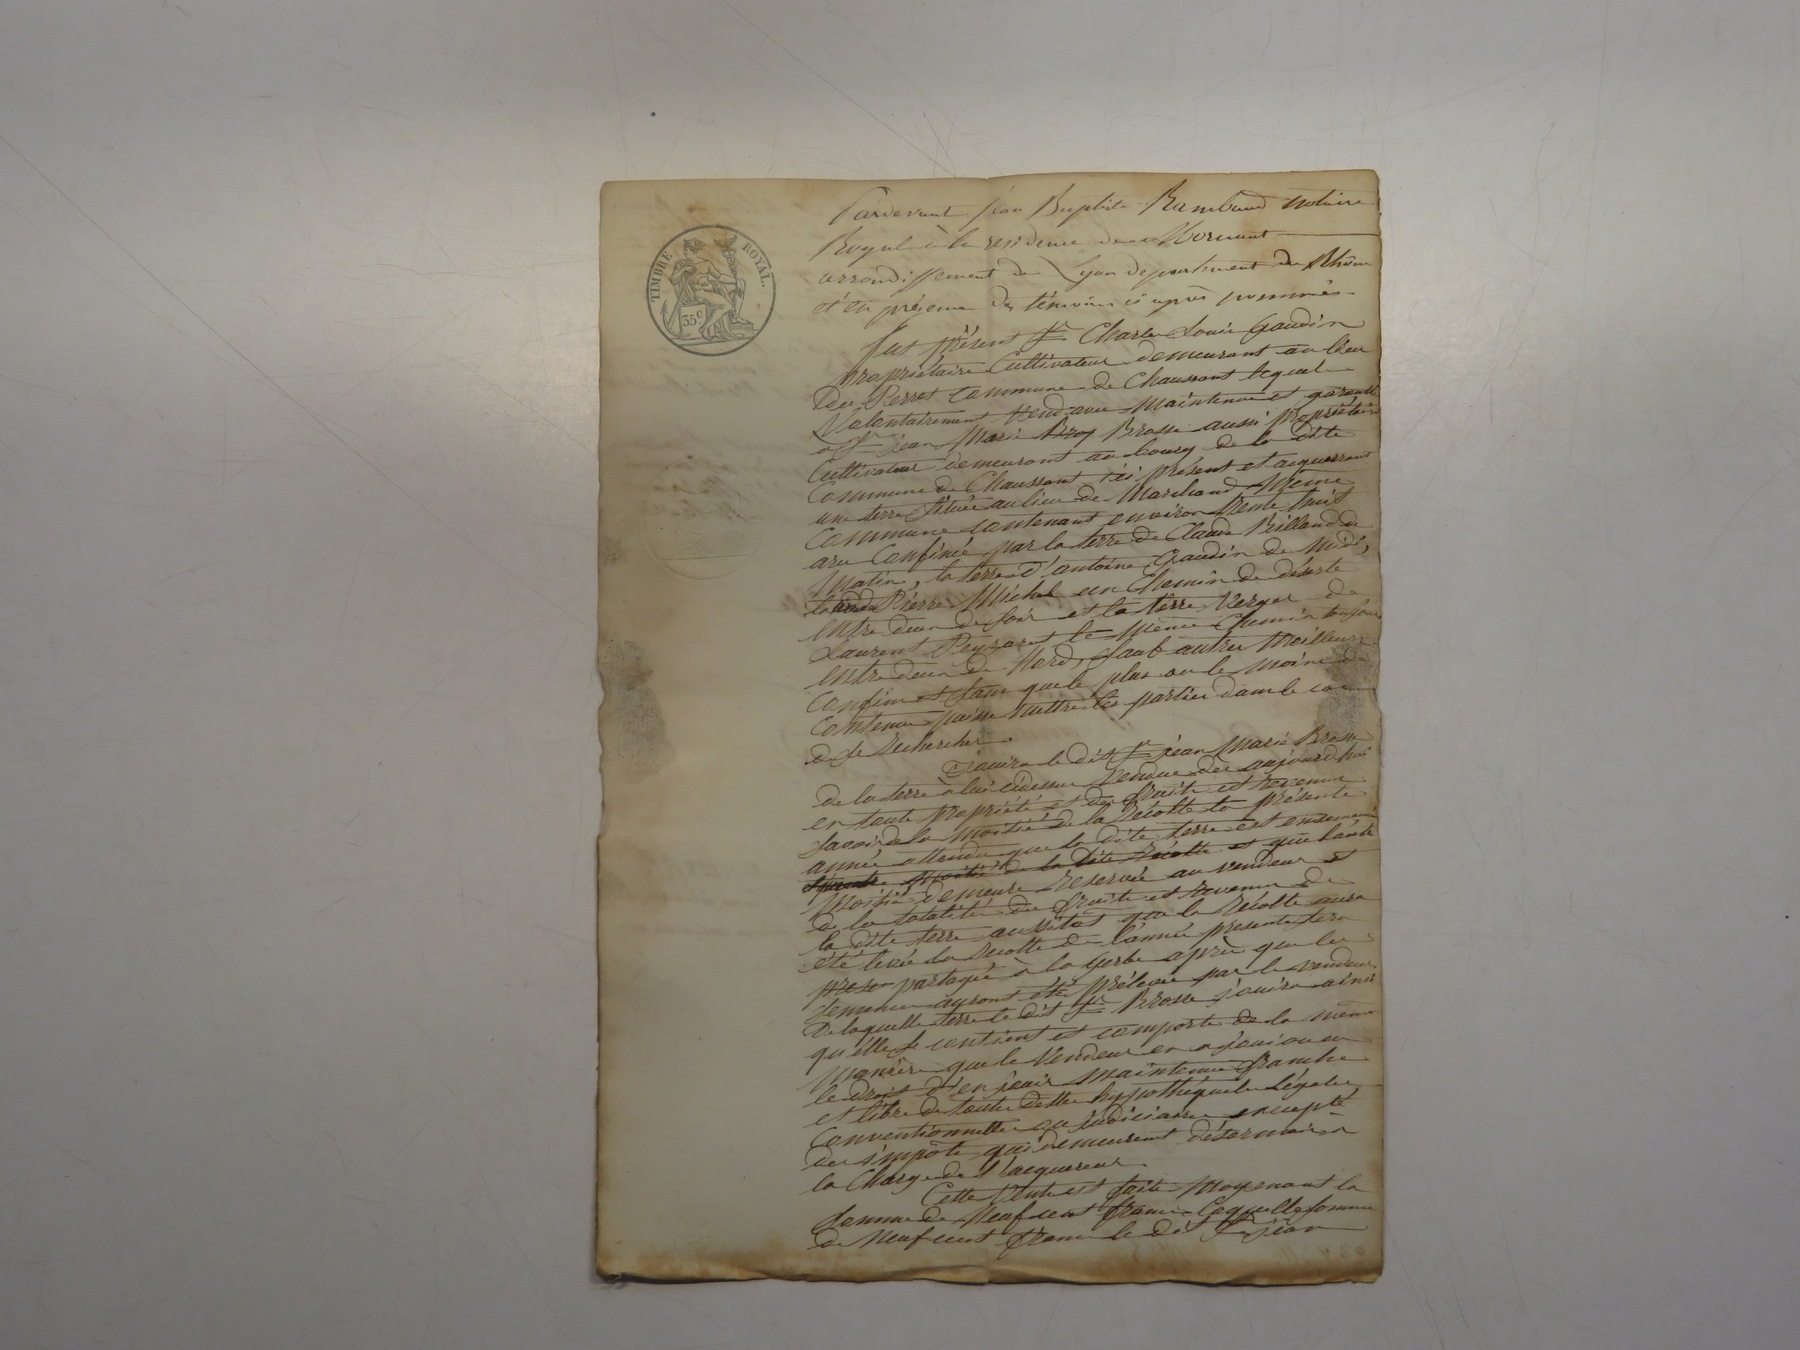 TIMBRE ROYAL.
35c
Pardevant jean Baptiste Rambaud notaire
Royal à la residence de Mornant
arrondissement de Lyon departement du Rhône
et en présence des témoins ci après nommés
fut présent Sr Charle Louis Gaudin
propriétaire Cultivateur demeurant au lieu
du Perret commune de Chaussant lequel
Volontairement Vend avec maintenue et garantie
a Sr jean Marie Broy Brosse aussi propriétaire
Cultivateur demeurant au bourg de la dite
Commune de Chaussant ici présent et acquerrant
une terre située au lieu de Marchand Même
Commune contenant environ trente huit
are Confinée par la terre de Claude Billand de
Matin, la terre d'antoine Gaudin de Midi,
Pierre Michel un Chemin de déserte
entre deux de soir et la terre Verger de
Laurent Peyraret le même Chemin toujour
entre deux de Nord, Sauf autre Meilleur
Confin et sans que le plus ou le moins de
Contenue puisse mettre les partier dans le cas
de se Rechercher
jouira le dit Sr jean Marie Brosse
de la terre à lui cidessu Vendue des aujourdhui
en toute propriété et des fruits et Revenus
savoir la moitié de la Récolte la présente
année attendu que la dite terre est ensemencée
moitié de la dite Récolte et que l'autre
Moitié demeure Réservée au vendeur et
de la totalité des fruits et Revenus de
la dite terre aussitot que la Récolte aura
été levée la Recolte de l'année presente sera
partagée à la gerbe après que les
semences auront été prélevée par le vendeur
De laquelle terre le dit Sr Brosse jouira ainsi
qu'elle se contient et comporte de la même
Manière que le Vendeur en a joui ou eu
le droit d'en jouir Maintenue franche
et libre de toute dette hypothéquaile Légale
Conventionnelle ou judiciaire excepté
des impôts qui demeurent désormais a
la Charge de l'acquereur
Cette Vente est faite Moyenant la
somme de Neuf cent francs Laquelle somme
de Neuf cent francs le dit Sr jean